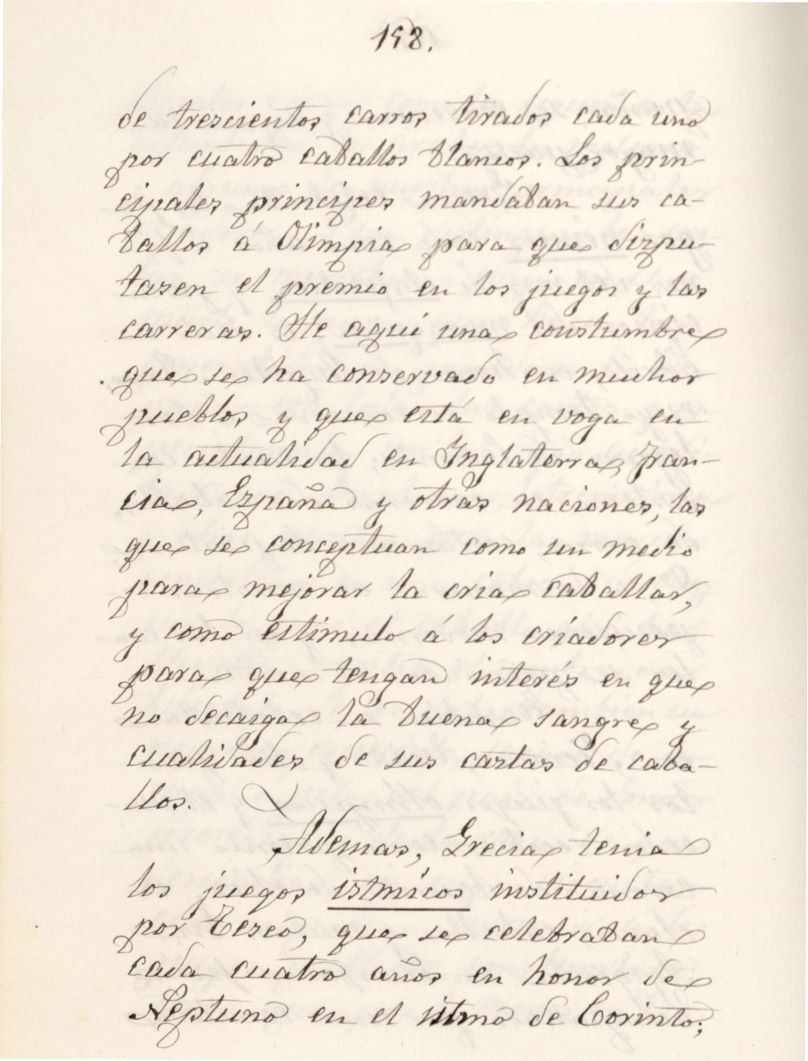 198.
de trescientos carros tirados cada uno
por cuatro caballos blancos. Los prin-
cipales principes mandaban sus ca-
ballos á Olimpia para que dispu-
tasen el premio en los juegos y las
carreras. He aquí una constumbre
que se ha conservado en muchos
pueblos y que está en voga en
la actualidad en Inglaterra, Fran-
cia, España y otras naciones, las
que se conceptuan como un medio
para mejorar la cria caballar,
y como éstimulo á los criadores
para que tengan interés en que
no decaiga la buena sangre y
cualidades de sus castas de caba-
llos.
Ademas, Grecia tenia
los juegos istmicos instituidos
por Teseo, que se celebraban
cada cuatro años en honor de
Neptuno en el istmo de Corinto;